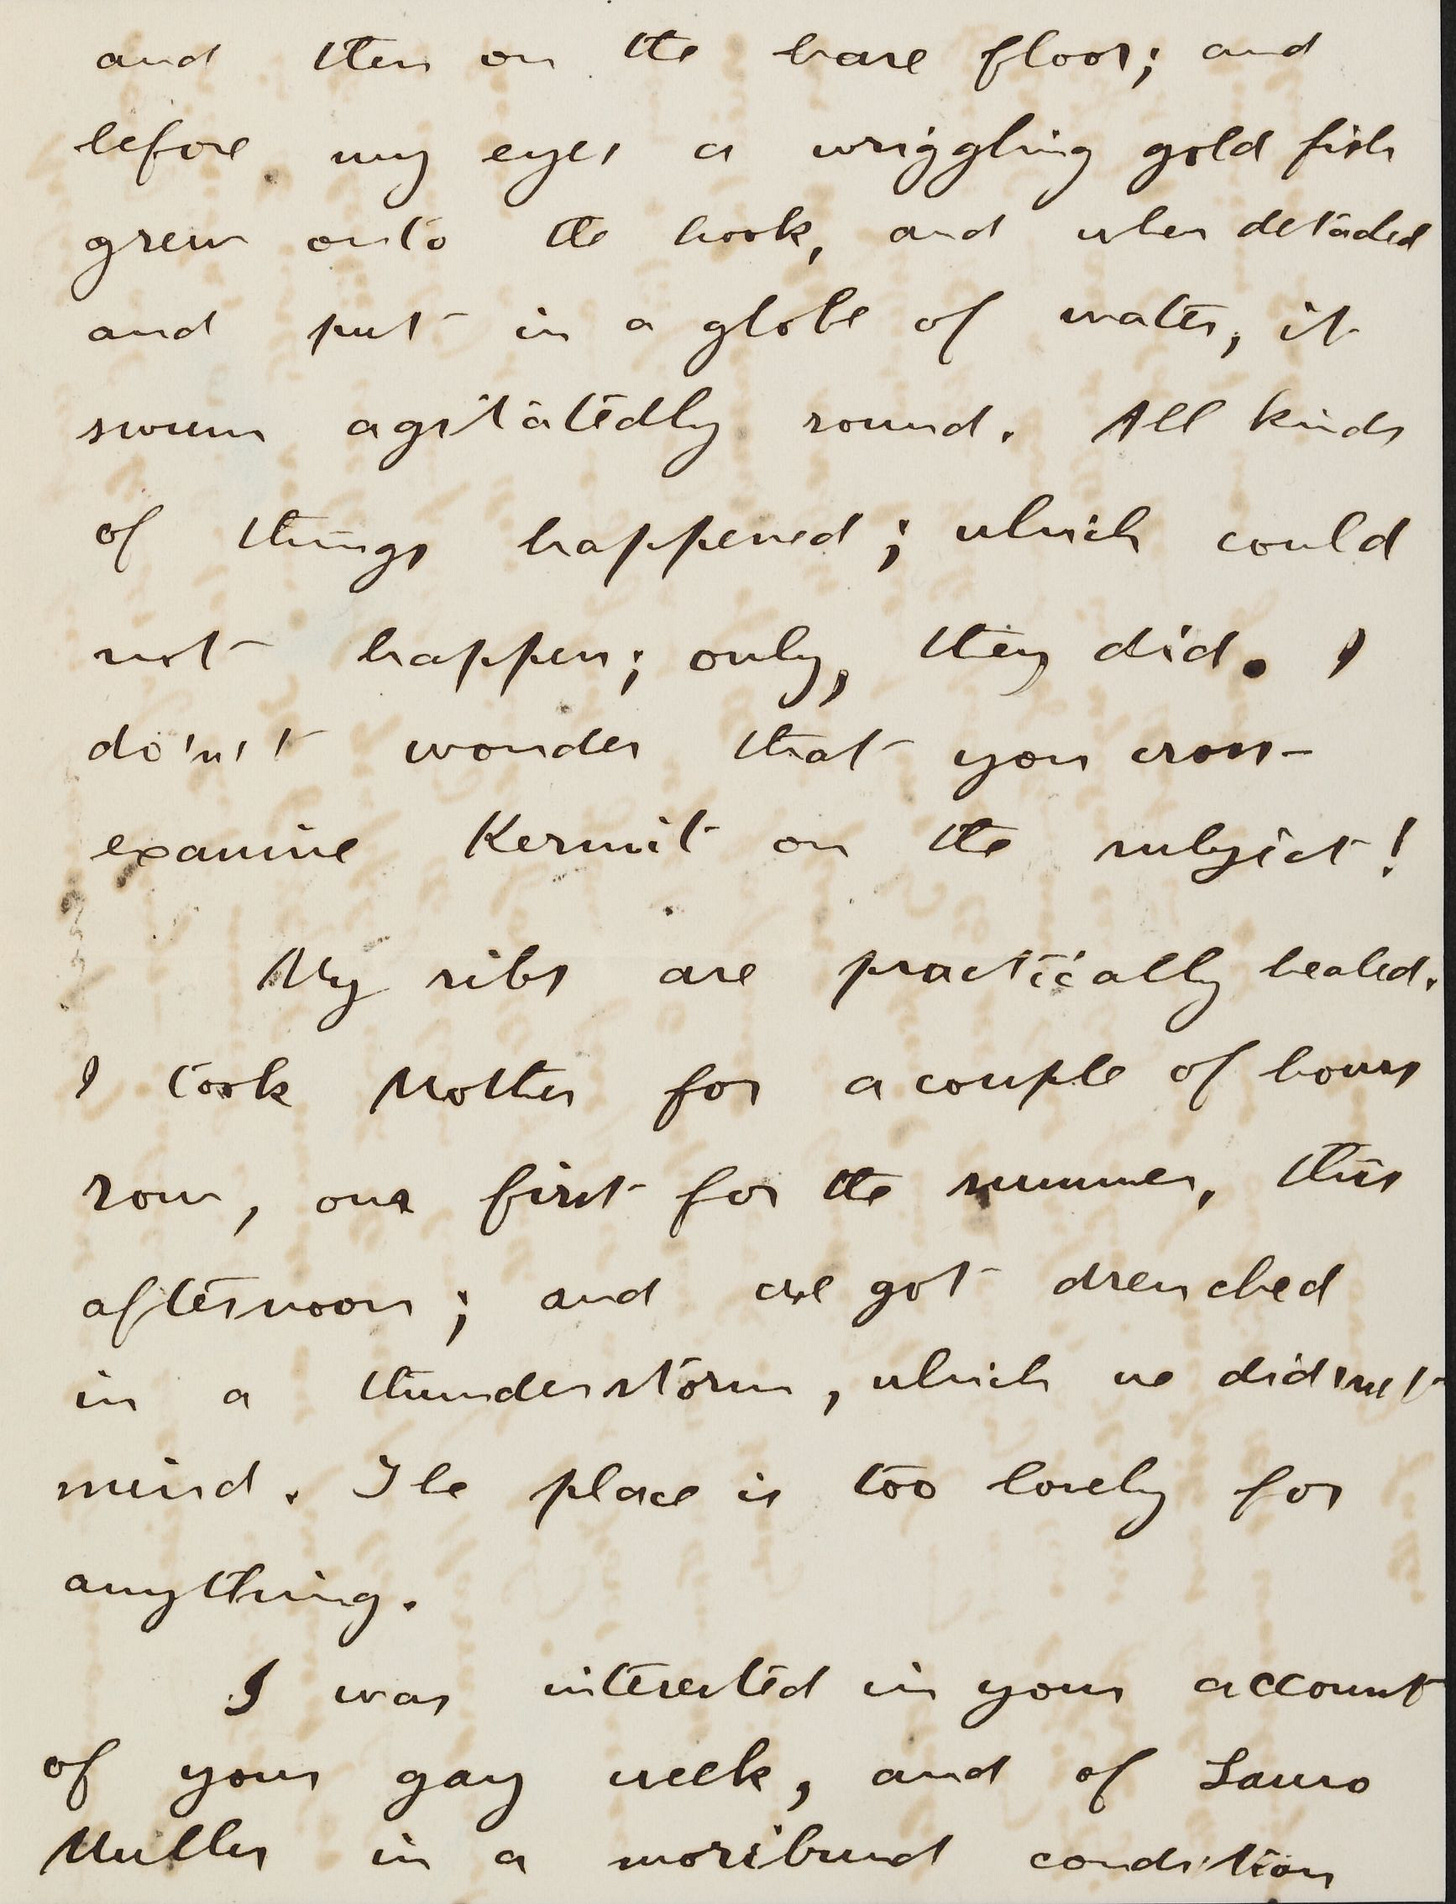 and then on the bare floor; and
before my eyes a wriggling gold fish
grew onto the hook, and when detached
and put in a globe of water, it
swum agitatedly round. All kinds
of things happened; which could
not happen; only, they did. I
do'n't wonder that you cross-
examine Kermit on the subject!
My ribs are practically healed.
I took Mother for a couple of hours
row, our first for the summer, this
afternoon; and we got drenched
in a thunderstorm, which we did'n't
mind. The place is too lovely for
anything.
I was interested in your account
of your gay week, and of Lauro
Muller in a moribund condition